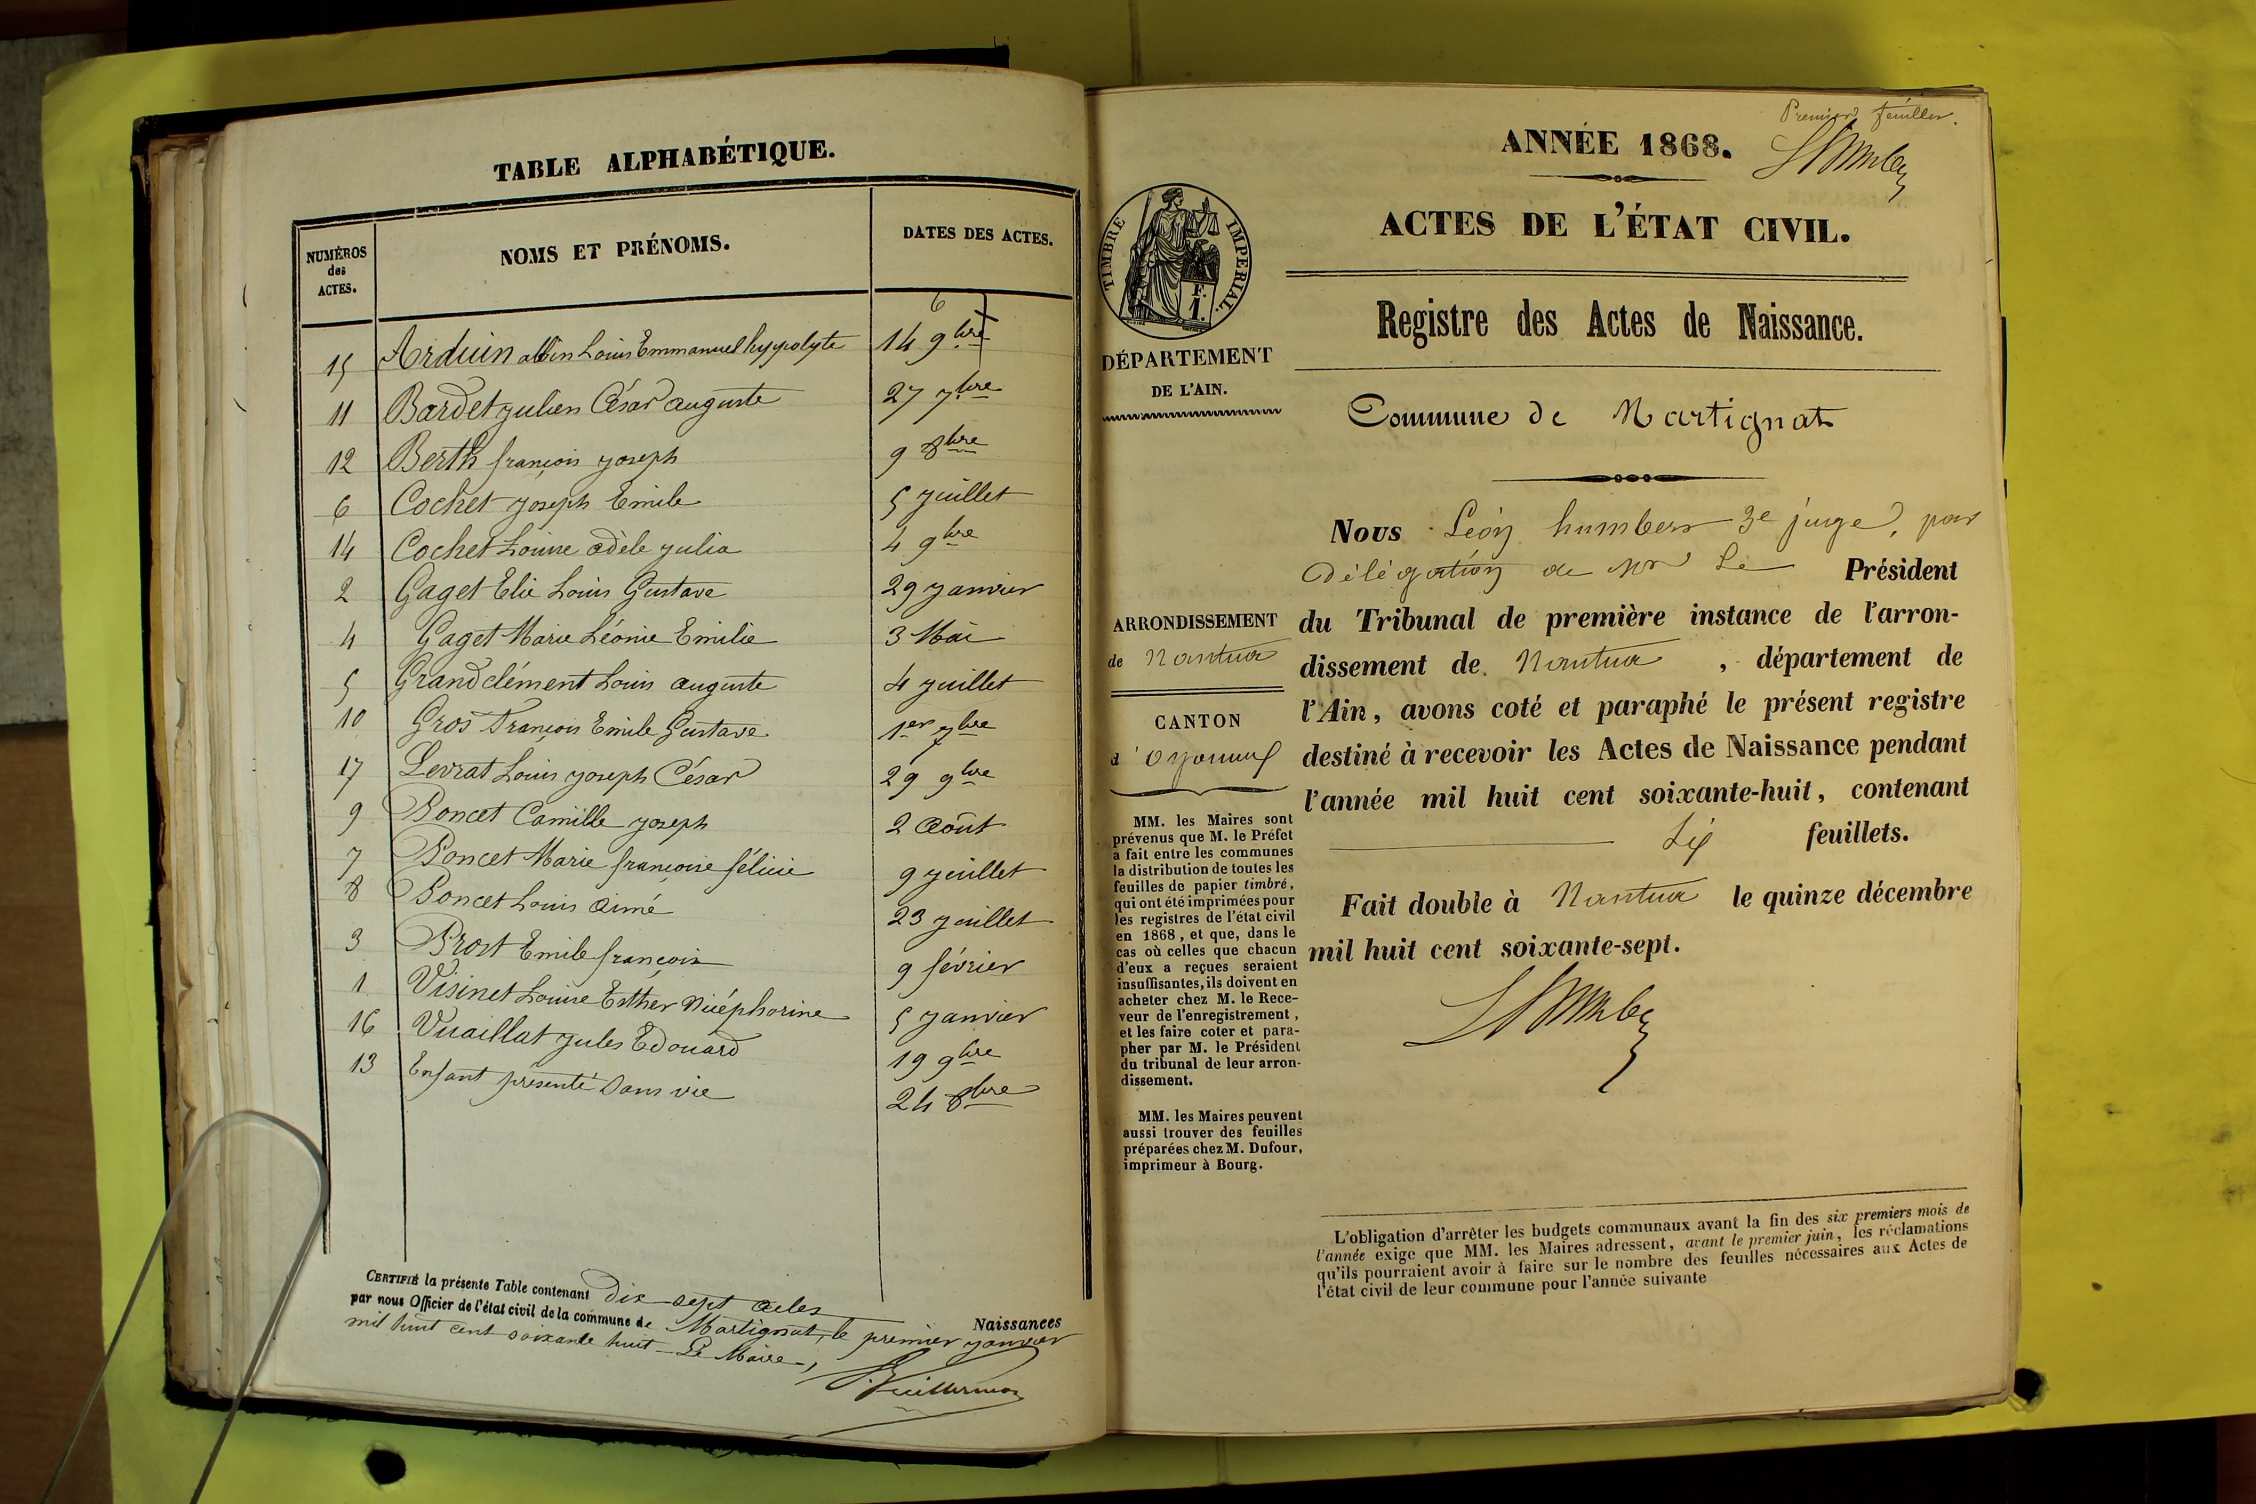 TABLE ALPHABÉTIQUE.
NUMÉROS des ACTES. NOMS ET PRÉNOMS. DATES DES ACTES.
15 Arduin albin Louis Emmanuel hyppolyte 14 9bre
11 Bardet Julien César auguste 27 7bre
12 Berth françois Joseph 9 8bre
6 Cochet Joseph Emile 5 Juillet
14 Cochet Louise adèle Julia 4 9bre
2 Gaget Elie Louis Gustave 29 Janvier
4 Gaget Marie Léonie Emilie 3 Mai
5 Grandclément Louis auguste 4 Juillet
10 Gros François Emile Gustave 1er 7bre
17 Levrat Louis Joseph César 29 9bre
9 Poncet Camille Joseph 2 Août
7 Poncet Marie françoise félicie 9 Juillet
8 Poncet Louis aimé 23 Juillet
3 Prost Emile françois 9 février
1 Visinet Louise Esther Nicéphorine 5 Janvier
16 Vuaillat Jules Edouard 19 9bre
13 Enfant présenté sans vie 24 8bre
CERTIFIÉ la présente Table contenant Dix-sept actes Naissances
par nous Officier de l'état civil de la commune de Martignat, le premier Janvier
mil huit cent soixante huit - Le Maire,
Premier feuillet.
ANNÉE 1868.
ACTES DE L'ÉTAT CIVIL.
Registre des Actes de Naissance.
TIMBRE IMPÉRIAL.
F.
1.
DÉPARTEMENT
DE L'AIN.
Commune de Martignat
Nous Léon humbert 3e juge, par
délégation de Mr Le Président
du Tribunal de première instance de l'arron-
dissement de Nantua, département de
l'Ain, avons coté et paraphé le présent registre
destiné à recevoir les Actes de Naissance pendant
l'année mil huit cent soixante-huit, contenant
Six feuillets.
Fait double à Nantua le quinze décembre
mil huit cent soixante-sept.
ARRONDISSEMENT
de Nantua
CANTON
d'Oyonnax
MM. les Maires sont
prévenus que M. le Préfet
a fait entre les communes
la distribution de toutes les
feuilles de papier timbré,
qui ont été imprimées pour
les registres de l'état civil
en 1868, et que, dans le
cas où celles que chacun
d'eux a reçues seraient
insuffisantes, ils doivent en
acheter chez M. le Rece-
veur de l'enregistrement,
et les faire coter et para-
pher par M. le Président
du tribunal de leur arron-
dissement.
MM. les Maires peuvent
aussi trouver des feuilles
préparées chez M. Dufour,
imprimeur à Bourg.
L'obligation d'arrêter les budgets communaux avant la fin des six premiers mois de
l'année exige que MM. les Maires adressent, avant le premier juin, les réclamations
qu'ils pourraient avoir à faire sur le nombre des feuilles nécessaires aux Actes de
l'état civil de leur commune pour l'année suivante